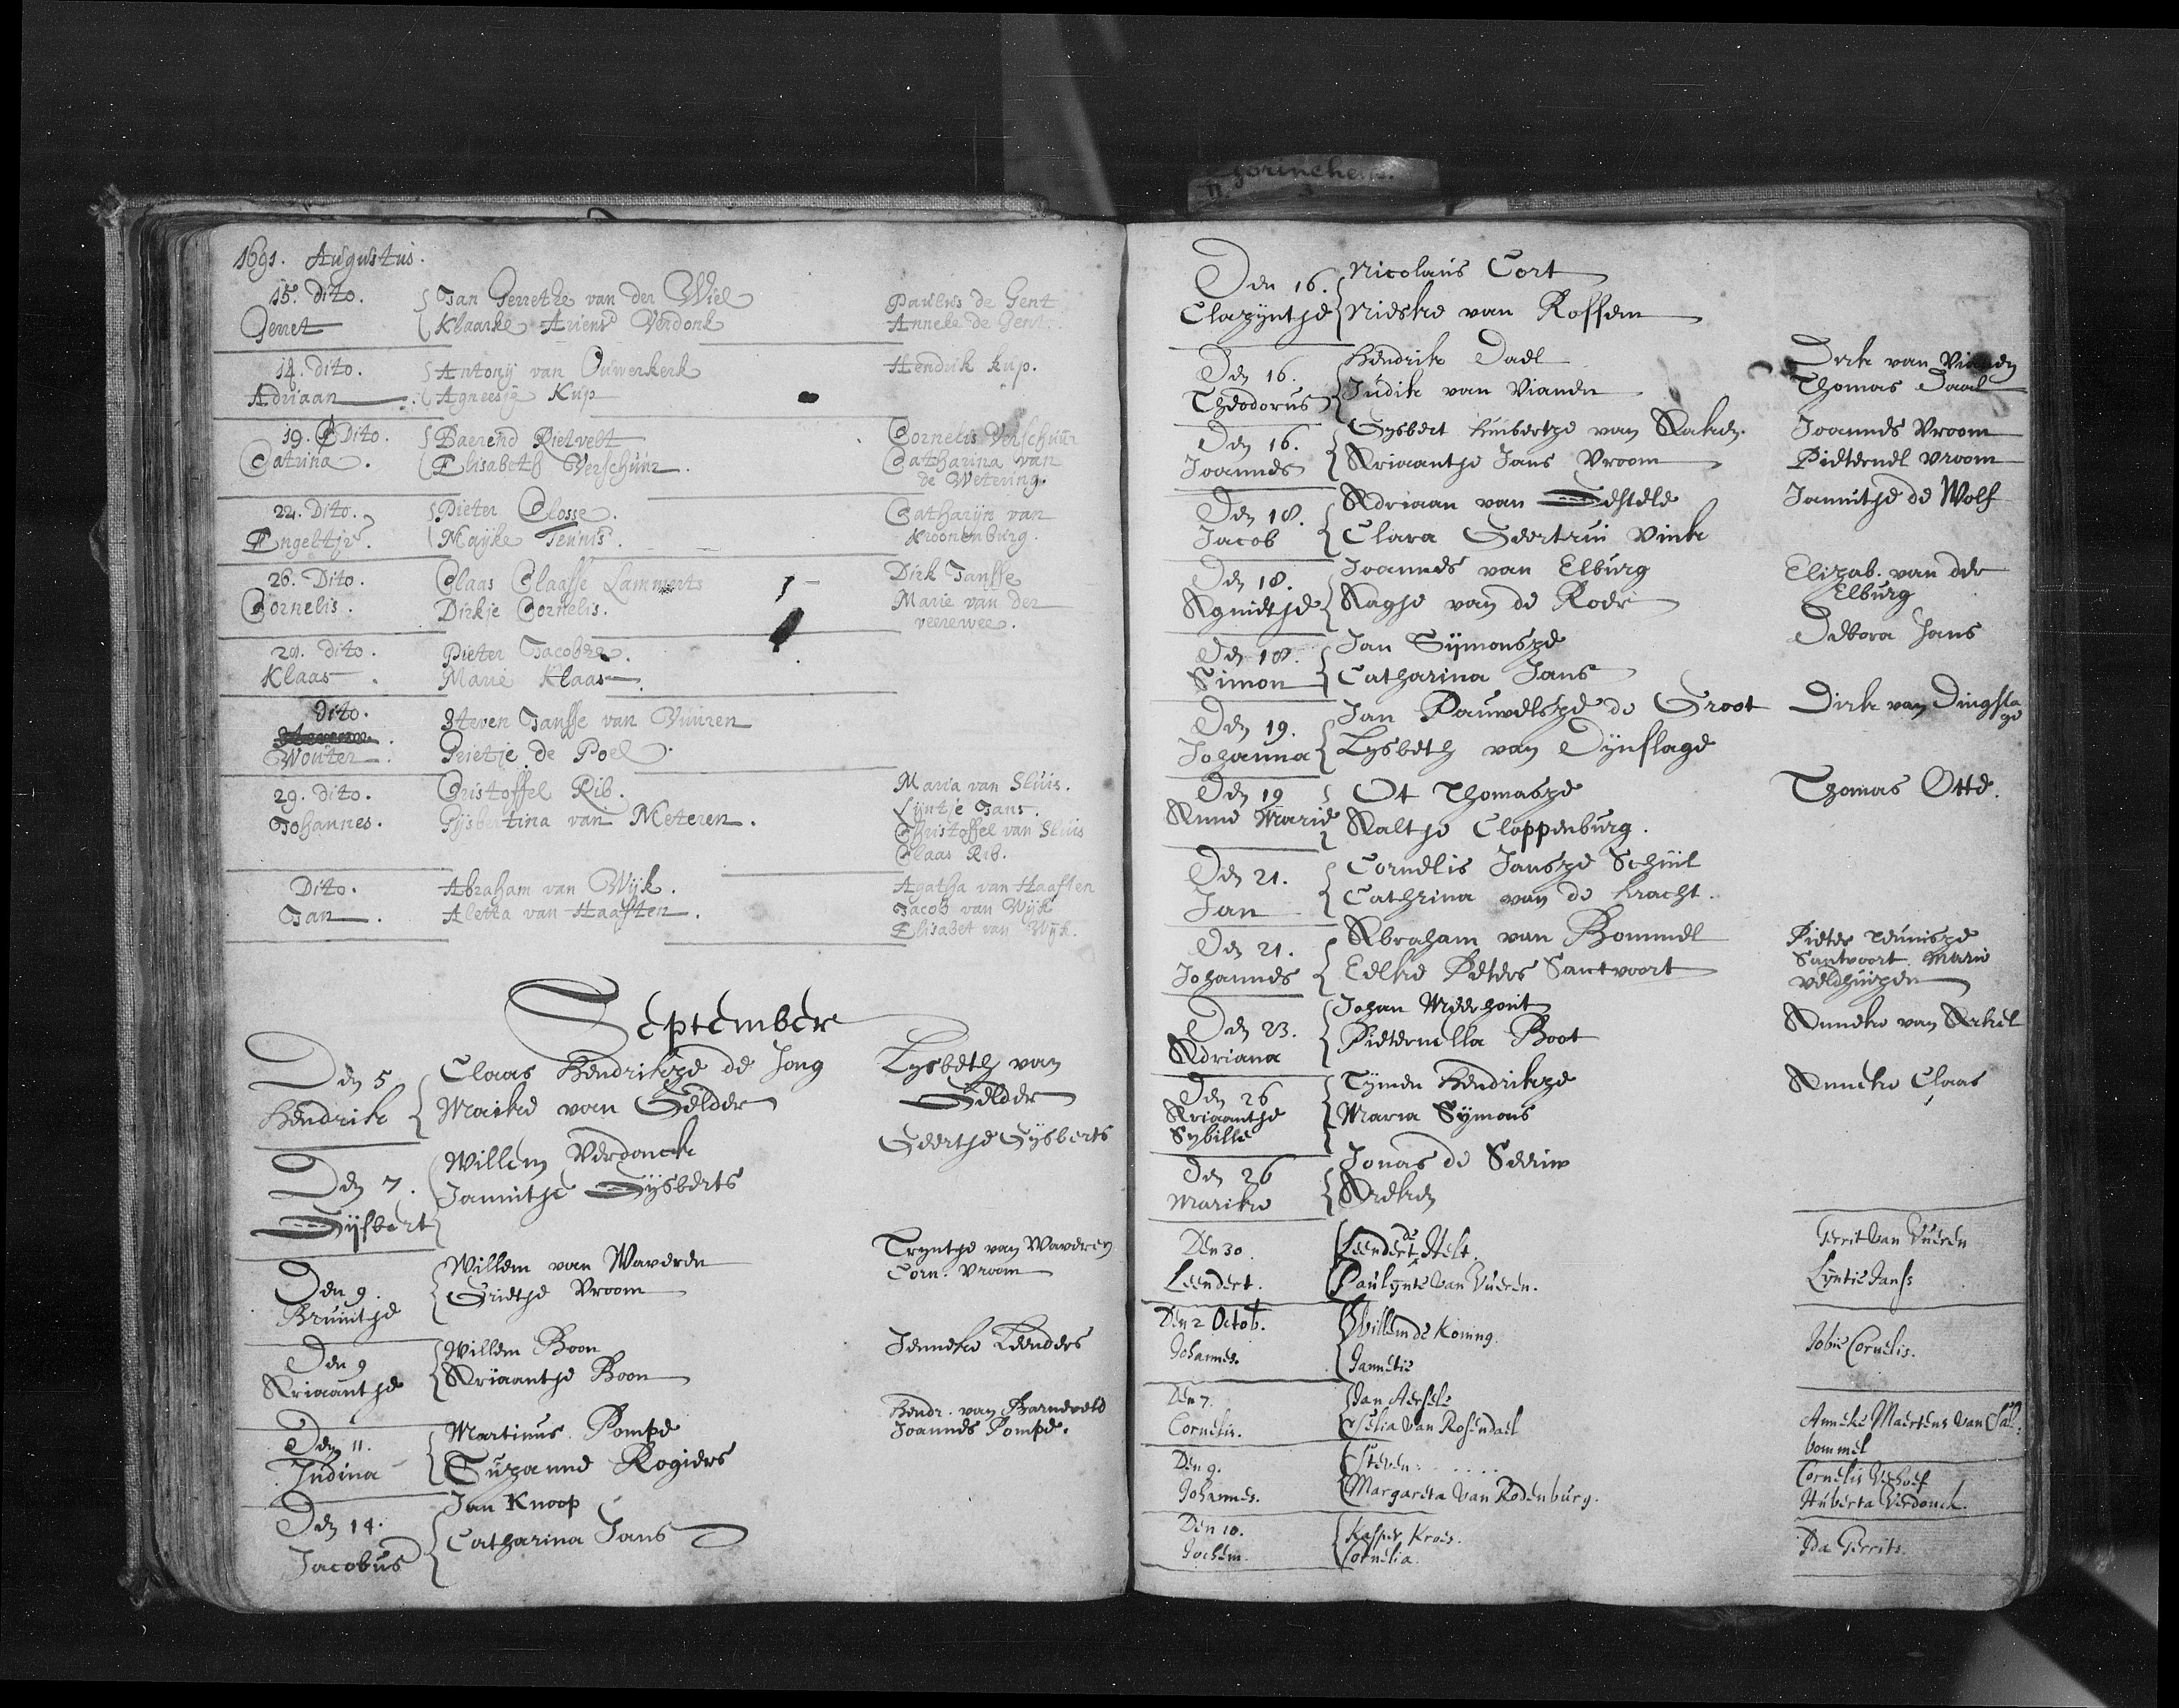 Gorinchem.
1691. Augustus.
15. Dito. Jan Gerretze van der Wiel Paulus de Gent
Gerret Klaaske Ariens Verdonk Anneke de Gent.
14. Dito. Antonij van Ouwerkerk Hendrik Kup.
Adriaan Agneesje Kup
19. Dito. Baerend Rietvelt Cornelis Verschuur
Catrina. Elisabeth Verschuur. Catharina van
de Wetering.
22. Dito. Pieter Closse. Catharijn van
Engeltje. Mayke Teunis. Kroonenburg.
26. Dito. Claas Claasse Lammerts Dirk Jansse
Cornelis. Dirkje Cornelis. Marie van der
veerewee.
dito. Pieter Jacobze.
Klaas Marie Klaas
Dito. Steven Jansse van Vuuren
Wouter Grietje de Poel.
29. dito. Cristoffel Rib. Maria van Sluis.
Johannes. Gijsbertina van Meteren. Lijntje Jans.
Christoffel van Sluis
Claas Rib.
Dito. Abraham van Wijk. Agatha van Haaften
Jan Aletta van Haaften. Jacob van Wijk
Elisabet van Wijk.
September
Den 5 Claas Hendrikze de Jong Lysbeth van
Hendrik Maike van Gelder Gelder
Den 7. Willem Verdonck Geertje Gysberts
Gijsbert Jannitje Gijsberts
Den 9. Willem van Waveren Tryntje van Waveren
Grietje Vroom Corn. Vroom
Den 9 Willem Boon Jenneke Leenders
Ariaantje Ariaantje Boon
Den 11. Martinus Pompe Hendr. van Barneveld
Judina Suzanne Rogiers Joannes Pompe.
Den 14. Jan Knoop
Jacobus Catharina Jans
Den 16. Nicolaus Cort
Clasyntje Nieske van Rossem
Den 16. Hendrik Dael Dirk van Vianen
Theodorus Judik van Vianen Thomas Daal
Den 16. Gysbert Huibertze van Aaken. Joannes Vroom
Joannes Ariaantje Jans Vroom Pieternel Vroom
Den 18. Adriaan van Gestele Jannitje de Wolf
Jacob Clara Geertrui Vink
Den 18. Joannes van Elburg Elizab. van der
Agnietje Aagje van de Roer Elburg
Den 18. Jan Symonsze Debora Jans
Simon Catharina Jans
Den 19. Jan Pauwelsze de Groot Dirk van Dingsla
ge
Johanna Lysbeth van Dynslage
Den 19 Ot Thomasze Thomas Otte.
Anne Marie Aaltje Cloppenburg.
Den 21. Cornelis Jansze Schuil
Jan Cathrina van de Kracht.
Den 21. Abraham van Bommel Pieter Teunisze
Johannes Eelke Peters Santvoort Santvoort Marie
veldhuizen
Den 23. Johan Meerhout Anneke van Arkel
Adriana Pieternella Boot
Den 26 Tymen Hendrikze Anneke Claas
Ariaantje Maria Symons
Sybille
Den 26 Jonas de
Marike
Den 30. Leendert de Helt. Gerrit van Vueren
Leendert. Paulijnte van Vueren. Lijntie Jans
Den 2 Octob. Willem de Koning. Jobie Cornelis.
Johannes. Jannetie
Den 7. Jan Anneke Maertens van Sal-
Cornelis. van Rosendael bommel
Den 9. Steven..... Cornelis Verhoef
Johannes. Margareta van Rodenburg. Huberta Verdonck.
Den 10. Kasper Kroes. Ida Gerrits.
Jochem. Cornelia.